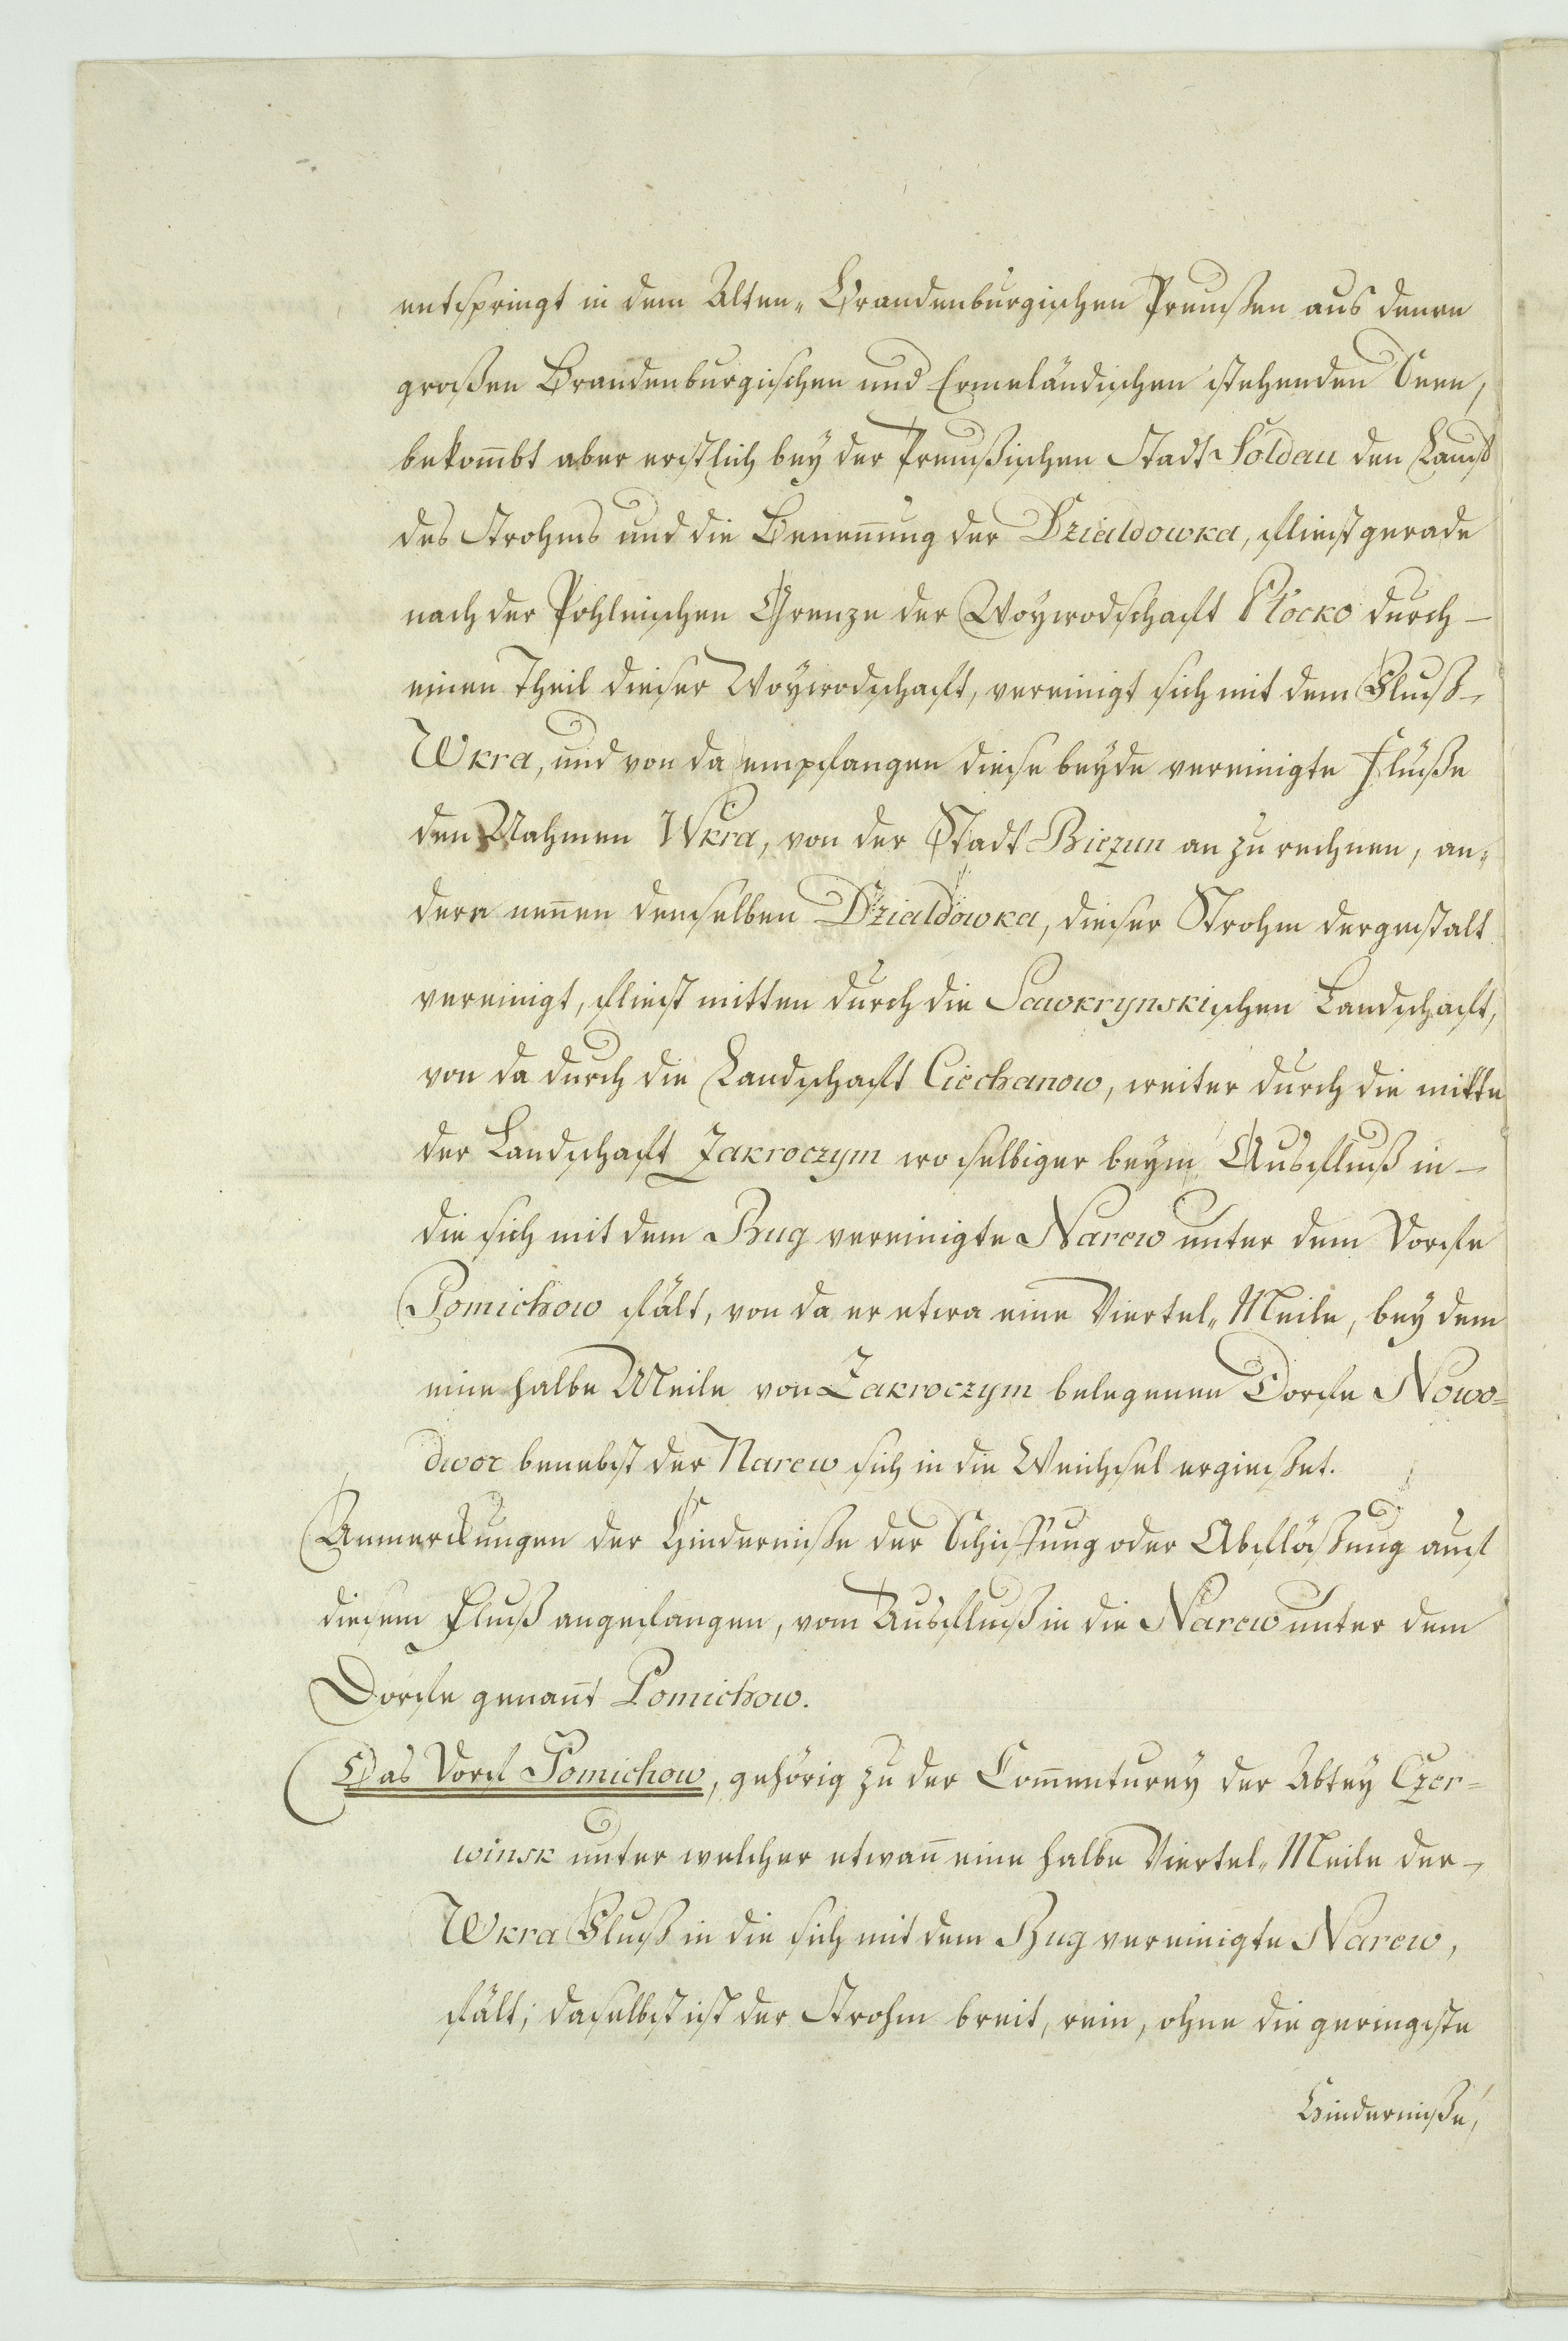 entspringt in dem Alten„ Brandenburgischen Preußen aus denen
großen Brandenburgischen und Ermeländischen stehenden Seen,
bekom̅bt aber erstlich bey der Preußischen Stadt Soldau den Lauf
des Strohms und die Benen̅ung der Dzialdowka, fließt gerade
nach der Pohlnischen Grenze der Woywodschaft Plocko durch–
einen Theil dieser Woywodschaft, vereinigt sich mit dem Fluß–
Wkra, und von da empfangen diese beyde vereinigte Flüße
den Nahmen Wkra, von der Stadt Biezun an zu rechnen, an„
dere nen̅en denselben Dzialdowka, dieser Strohm dergestalt
vereinigt, fließt mitten durch die Sawkrynskischen Landschaft,
von da durch die Landschaft Ciechanow, weiter durch die mitte
der Landschaft Zakroczym wo selbiger beym Ausfluß in–
die sich mit dem Bug vereinigte Narew unter dem Dorfe
Pomichow fält, von da er etwa eine Viertel„ Meile, bey dem
eine halbe Meile von Zakroczym belegenen Dorfe Nowo=
dwor benebst der Narew sich in die Weichsel ergießet.
Anmerckungen der Hinderniße der Schiffung oder Abflößung auf
diesem Fluß angefangen, vom Ausfluß in die Narew unter dem
Dorfe genan̅t Pomichow.
Das Dorf Pomichow, gehörig zu der Com̅enturey der Abtey Czer=
winsk unter welcher etwan̅ eine halbe Viertel„ Meile der–
Wkra Fluß in die sich mit dem Bug vereinigte Narew,
fält; daselbst ist der Strohm breit, rein, ohne die geringste
Hinderniße,